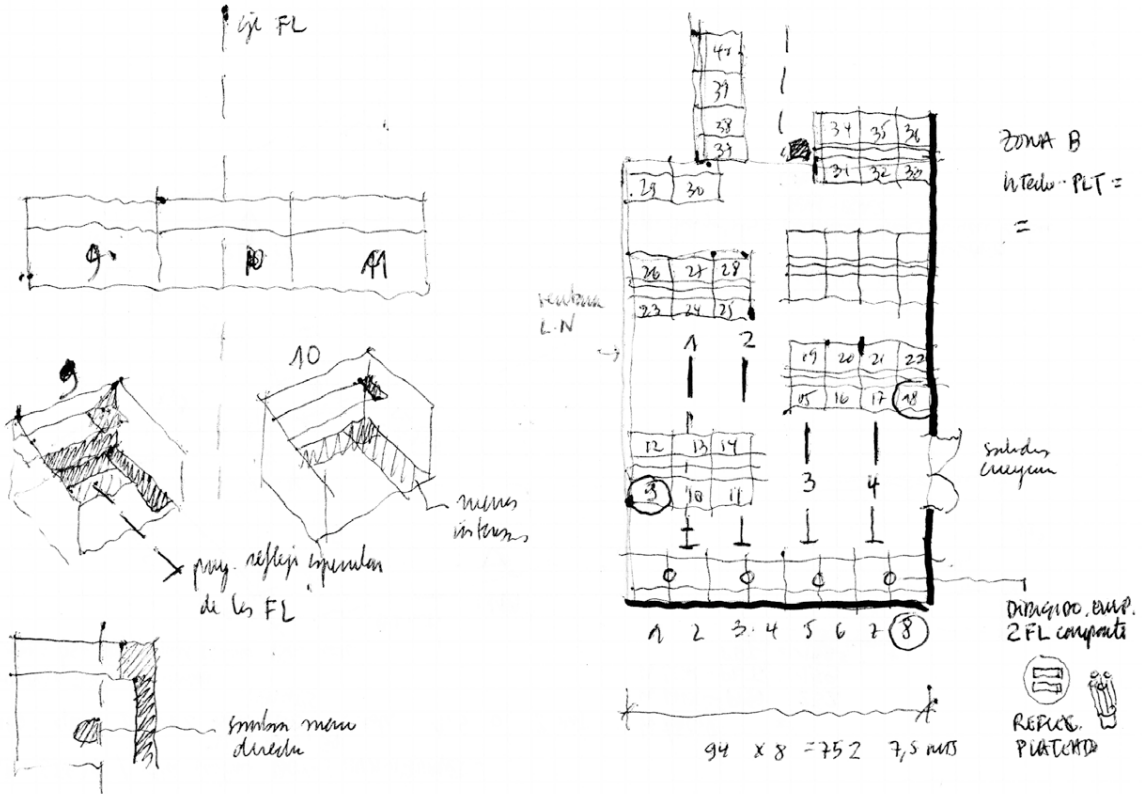 eje FL
9
10
11
9
10
menos
intenso
proy. reflejo especular
de los FL
sombra mano
derecha
40
39
38
37
34 35 36
31 32 33
29 30
26 27 28
23 24 25
ventana
L.N
1 2
19 20 21 22
15 16 17 18
12 13 14
9 10 11
3 4
salidas
1 2 3 4 5 6 7 8
94 x 8 = 752 7,5 mts
ZONA B
PLT =
=
DIRIGIDO
2 FL compacto
REFLEC.
PLATEADO